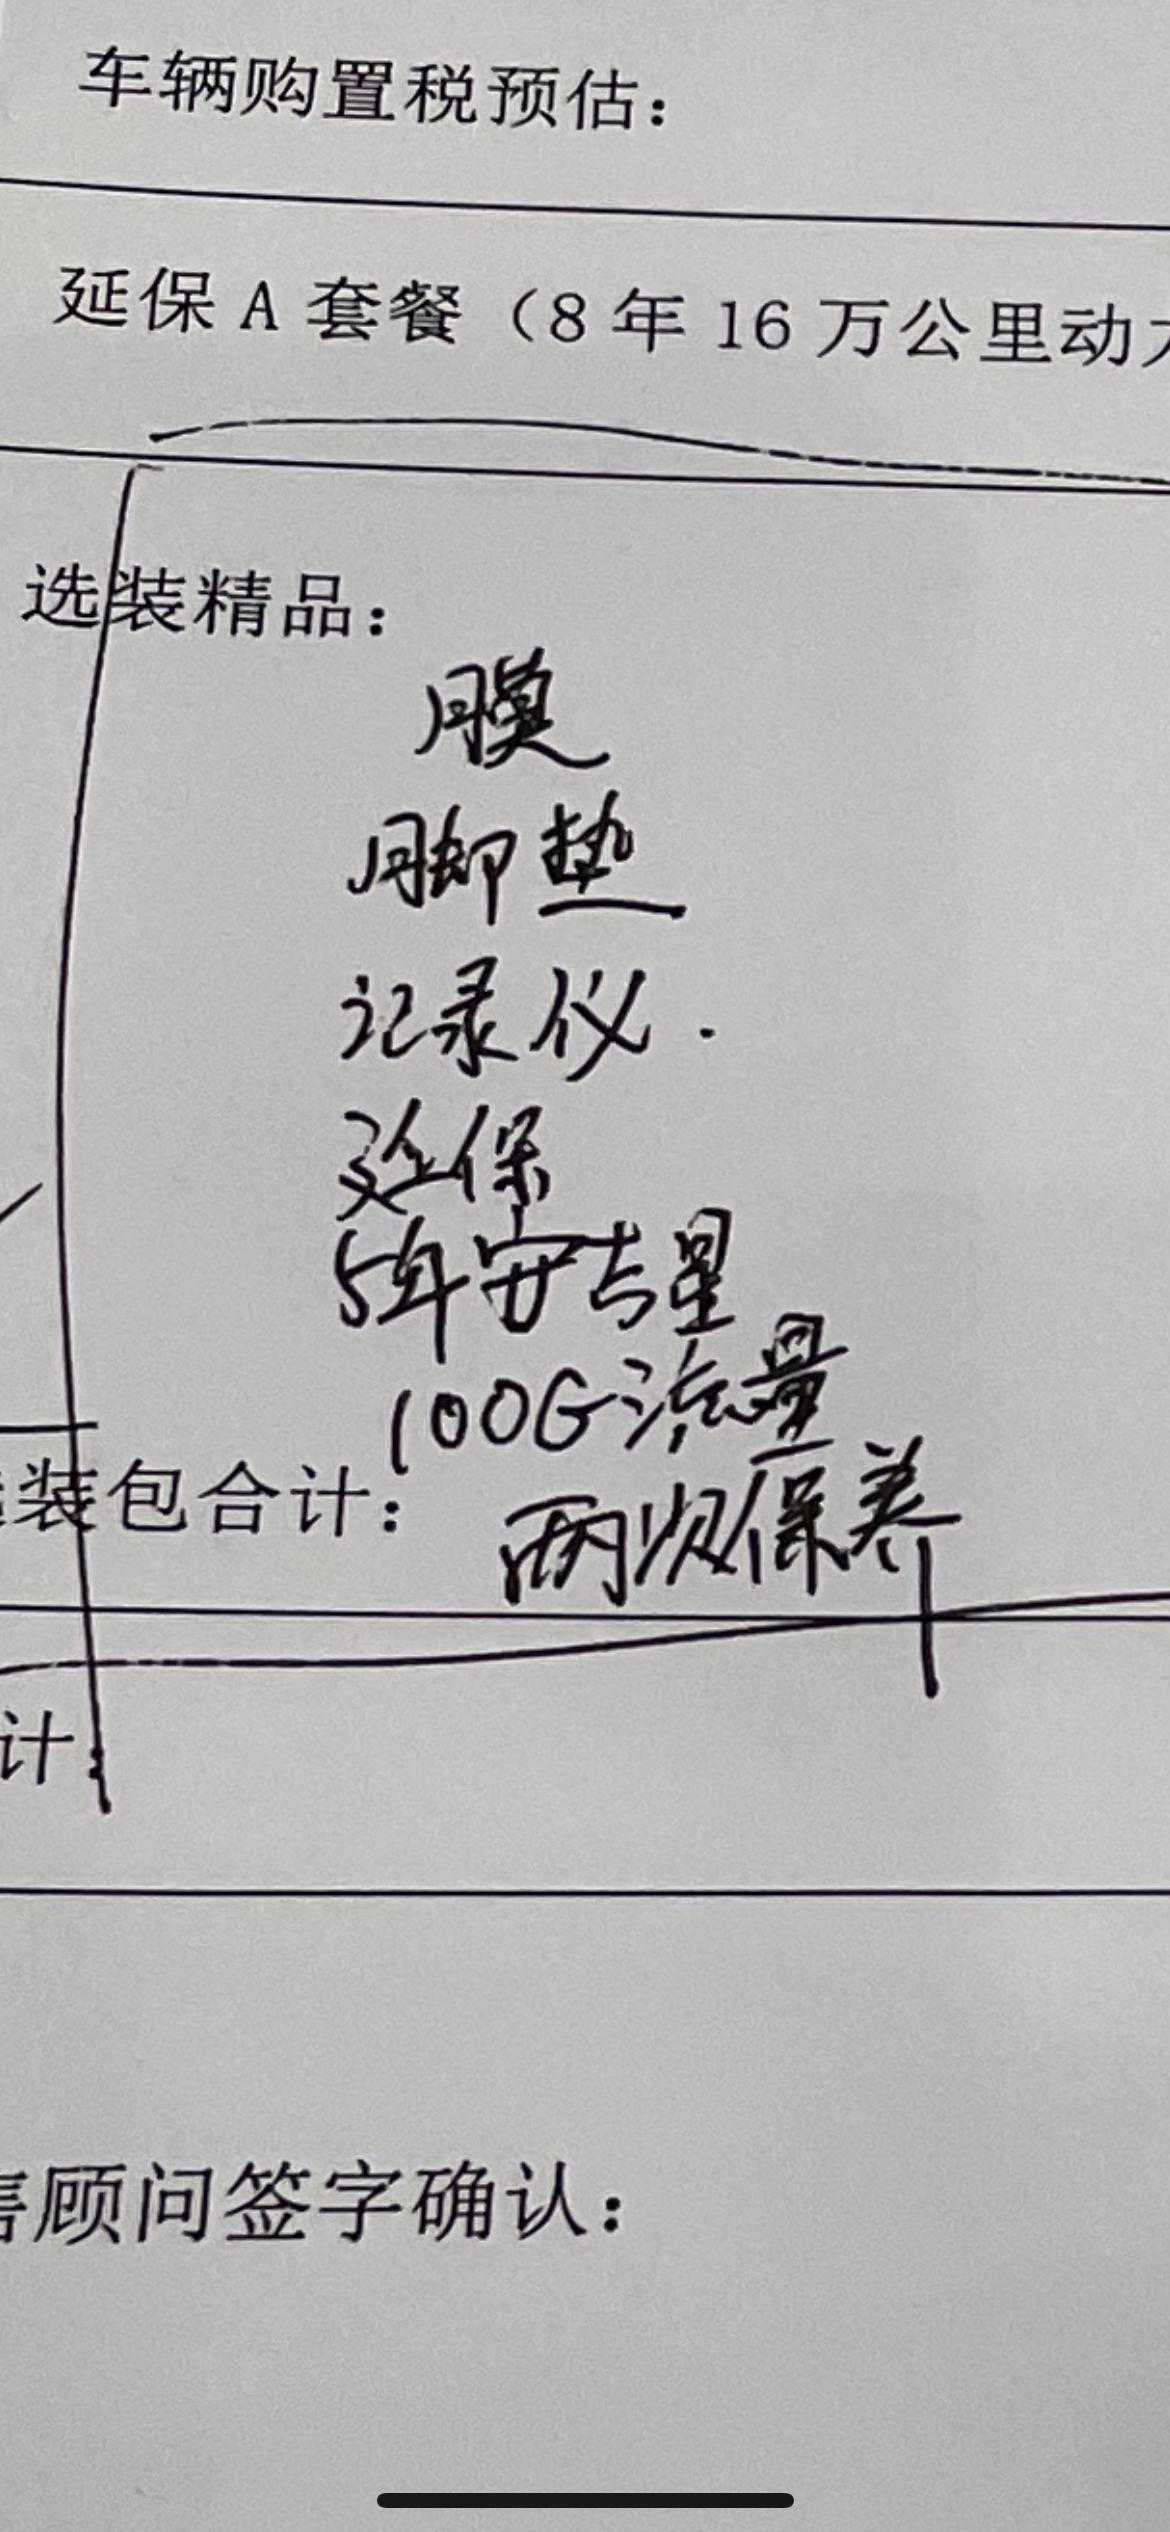 车辆购置税预估：
延保 A 套餐（8 年 16 万公里动力
选装精品：
膜
脚垫
记录仪.
延保
5年安吉星
100G流量
装包合计：
两次保养
计：
售顾问签字确认：